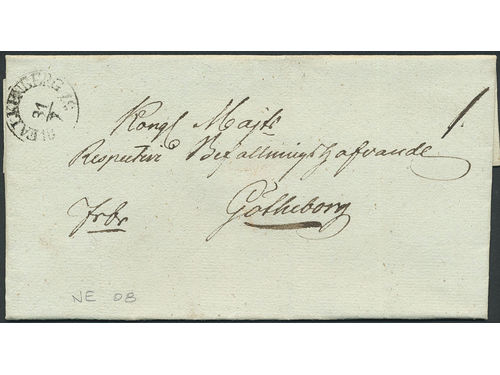 FALKENBERG
31
7
Kongl Majts
Respective Befallningshafvande
Götheborg
Frbr
NE OB